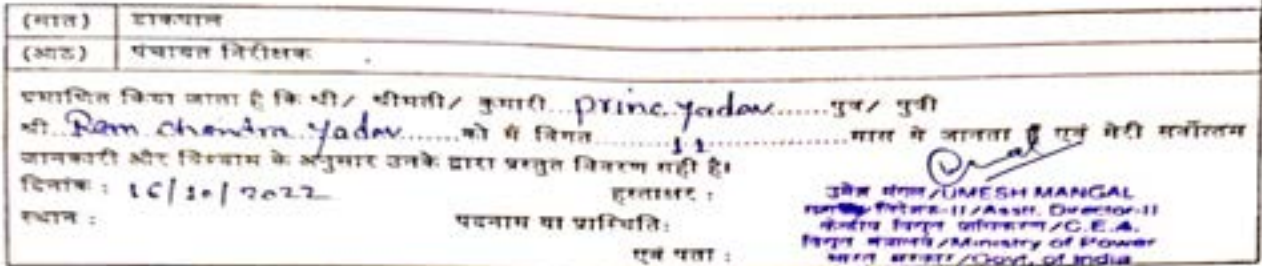 (सात) डाकपाल
(आठ) पंचायत निरीक्षक
प्रमाणित किया जाता है कि श्री/ श्रीमती/ कुमारी...princ.yadav......पुत्र/ पुत्री
श्री..Ram Chandra Yadav.......को मैं विगत..........11..................मास से जानता हूँ एवं मेरी सर्वोत्तम
जानकारी और विश्वास के अनुसार उनके द्वारा प्रस्तुत विवरण सही है।
दिनांक : 16/10/2022 हस्ताक्षर :
उमेश मंगल/UMESH MANGAL
स्थान :
निदेशक-II/Asstt. Director-II
पदनाम या प्रास्थिति:
केन्द्रीय विद्युत प्राधिकरण/C.E.A.
विद्युत मंत्रालय/Ministry of Power
एवं पता :
भारत सरकार/Govt. of India